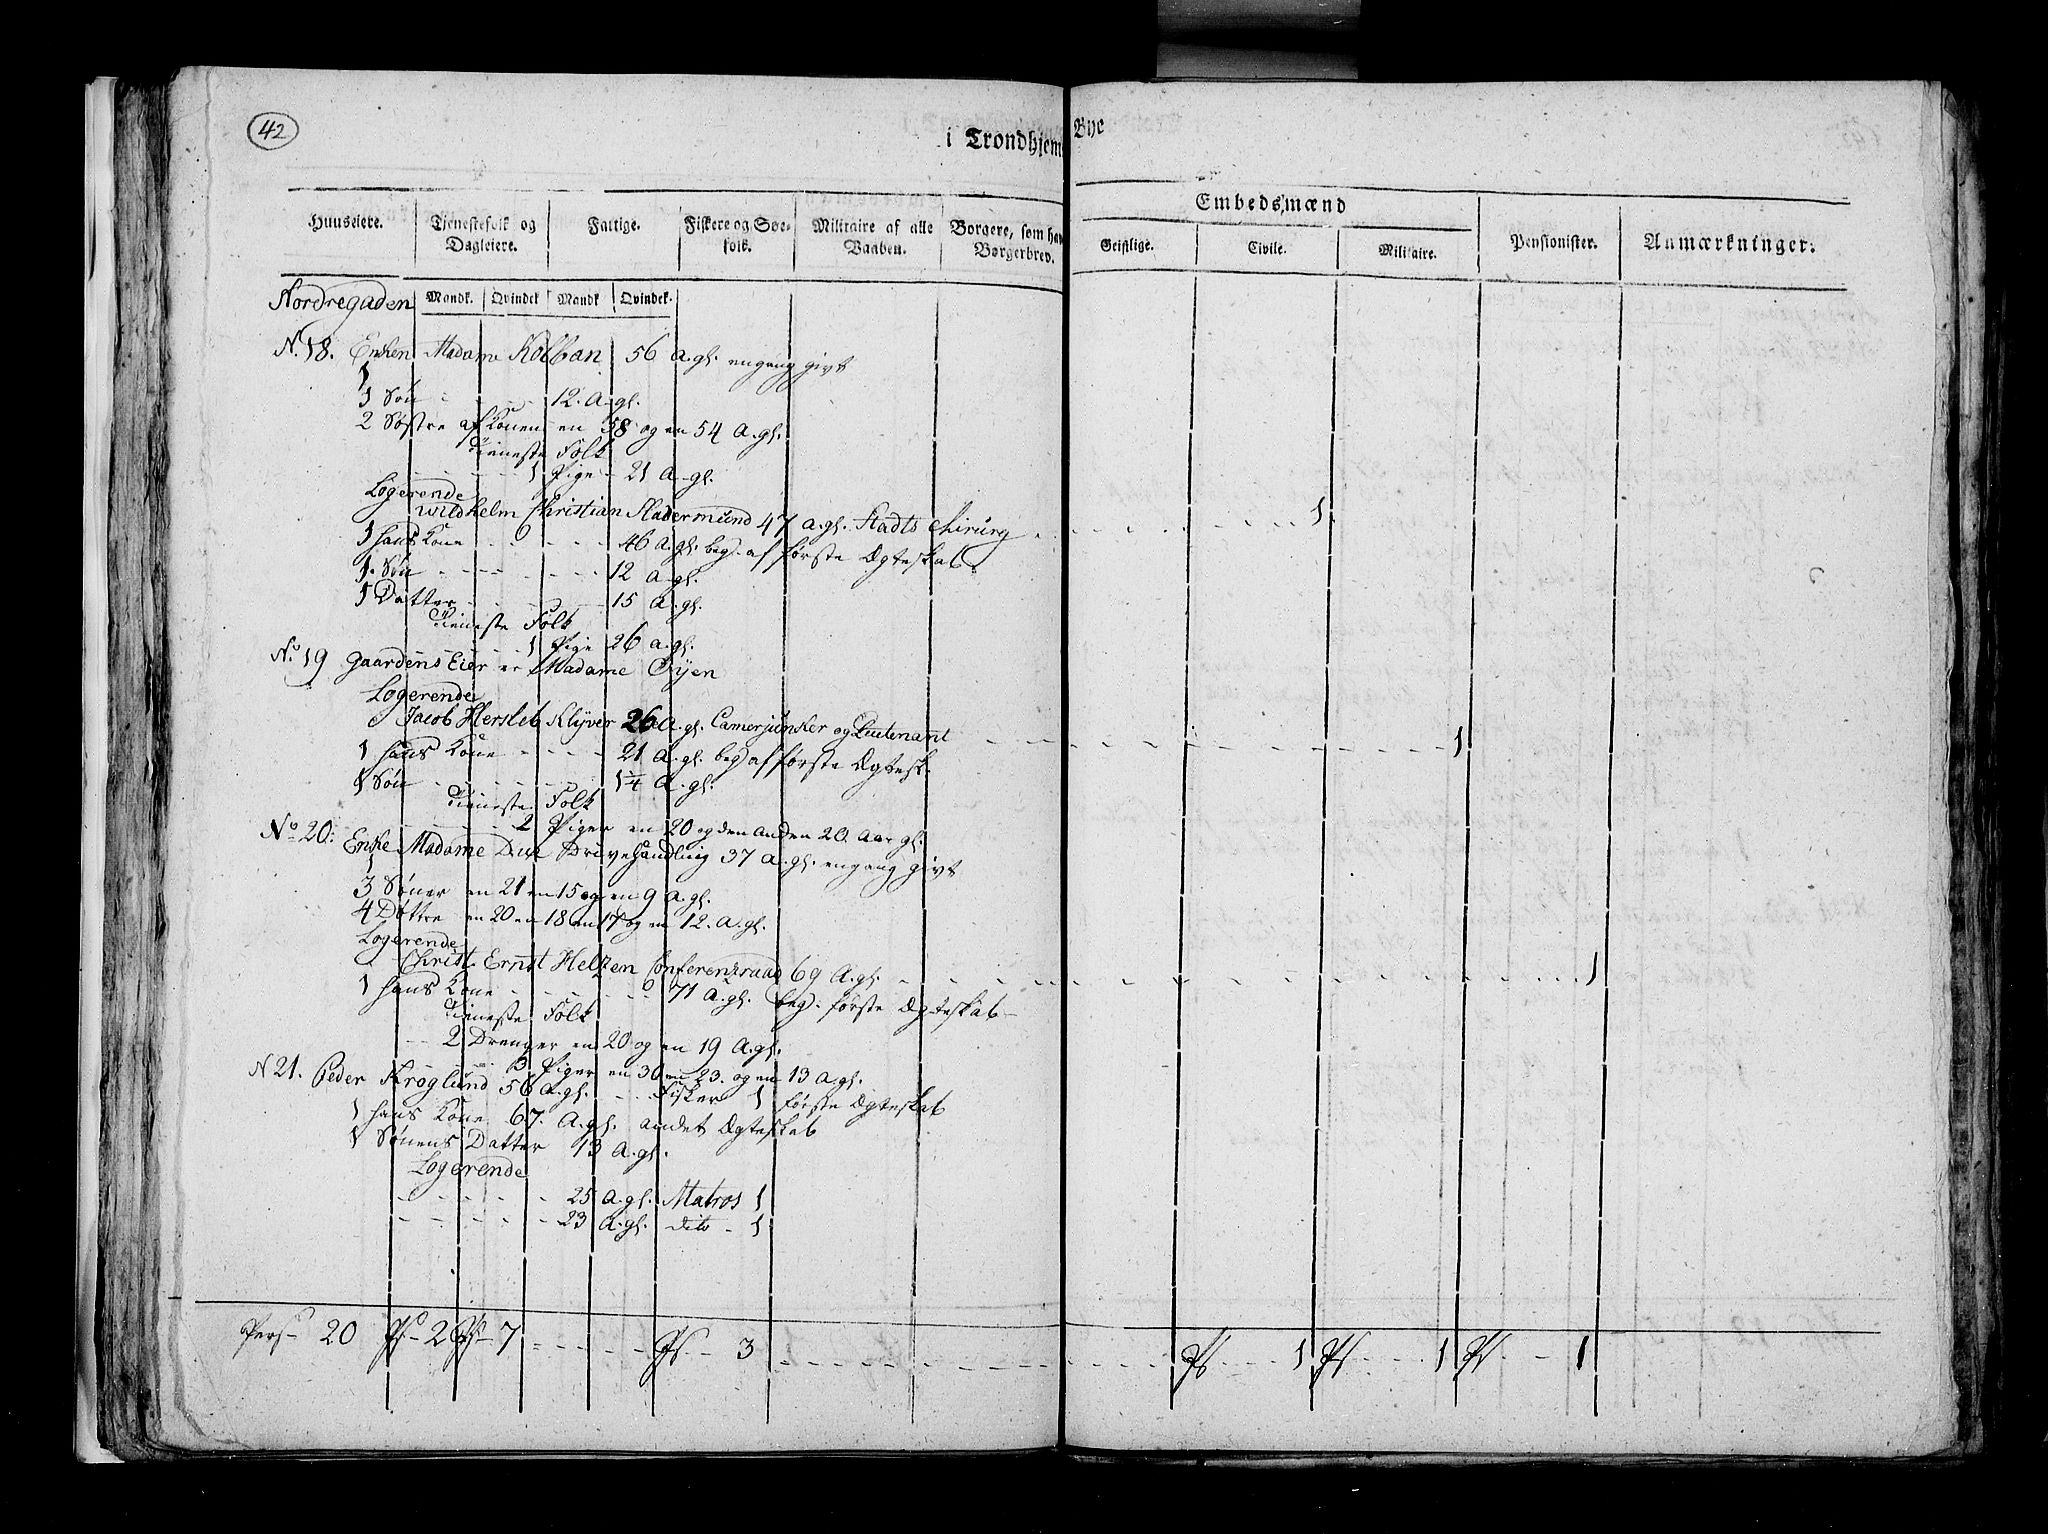 42
i Trondhjems Bye
Embedsmænd
Huuseiere. Tjenestefolk og Dagleiere. Fattige. Fiskere og Søefolk. Militaire af alle Vaaben. Borgere, som hav Borgerbrev. Geistlige. Civile. Militaire. Pensionister. Anmærkninger.
Nordregaden Mandk. Qvindek Mandk Qvindek.
N. 18. Enken Madame Kolban 56 A. gl. engang givt
1
1 Søn - - - - 12. A. gl.
2 Søstre af Konen en 58 og en 54 A. gl.
Tieneste Folk
- - - - 1 Pige - 21 A. gl.
Logerende
Wildhelm Christian Stadermünd 47 A. gl. Stadts Chirurg - - - - 1
1 hans Kone - - - - 46 A. gl. beg. af første Ægteskab.
1. Søn - - - - 12 A. gl.
1 Datter - - - - 15 A. gl.
Tieneste Folk
- - - - 1 Pige 26 A. gl.
No. 19 Gaardens Eier er Madame Oyen
Logerende
Jacob Hersleb Klyver 26 A. gl. Camerjunker og Lieutenant - - - - 1
1 hans Kone - - - - 21 A. gl. beg. af første Ægtesk.
1 Søn - - - - 1 1/4 A. gl.
Tieneste Folk
- - - - 2 Piger en 20 og den anden 20 Aar gl.
No. 20: Enke Madame Due Drive Handling 37 A. gl. engang givt
1
3 Sønner en 21 en 15 og en 9 A. gl.
4 Døttre en 20 en 18 en 17 og en 12. A. gl.
Logerende
Christ. Ernst Heltzen Conferenzraad 69 A. gl. - - - - 1
1 hans Kone - - - - 71 A. gl. beg. første Ægteskab -
Tieneste Folk
- - 2 Drenger en 20 og en 19 A. gl.
- - - - 3 Piger en 30 en 23. og en 13 A. gl.
N 21. Peder Kroglund 56 A. gl. - - Fisker 1 første Ægteskab
1 hans Kone 67. A. gl. andet Ægteskab
1 Sønens Datter 13 A. gl.
Logerende
- - - - 25 A. gl. Matros 1
- - - - 23 A. gl. dito - 1
Pers - 20 Ps - 2 Ps - 7 - - - - Ps - 3 - - - - Ps - - - 1 Ps - - - 1 Ps - - 1